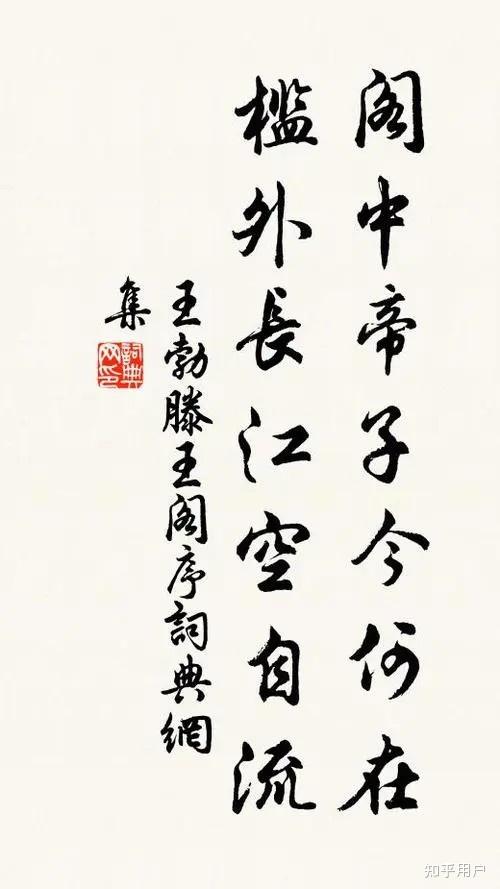 阁中帝子今何在
槛外長江空自流
王勃滕王阁序詞典網
集
詞典
网印
知乎用户